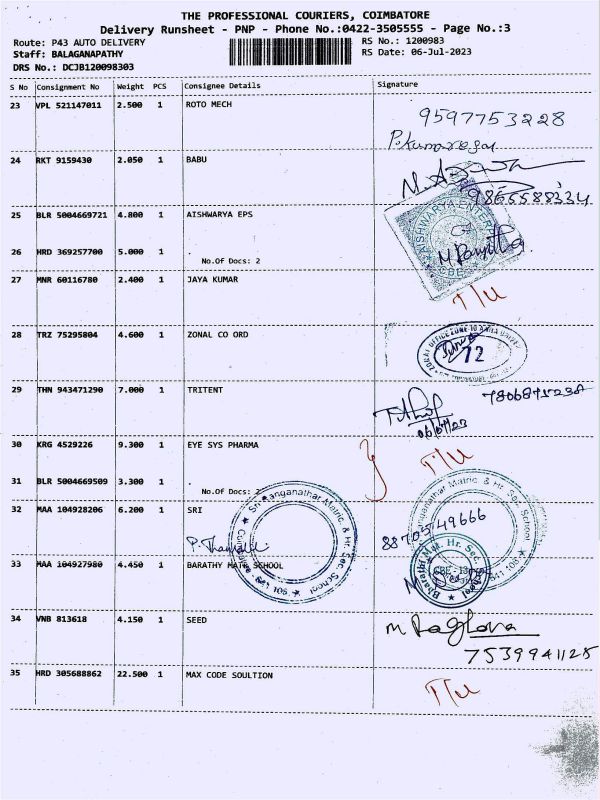 THE PROFESSIONAL COURIERS, COIMBATORE
Delivery Runsheet - PNP - Phone No.:0422-3505555 - Page No.:3
Route: P43 AUTO DELIVERY RS No.: 1200983
Staff: BALAGANAPATHY RS Date: 06-Jul-2023
DRS No.: DCJB120098303
S No Consignment No Weight PCS Consignee Details Signature
23 VPL 521147011 2.500 1 ROTO MECH
9597753228
P.Kumaresan
24 RKT 9159430 2.050 1 BABU
9865588334
25 BLR 5004669721 4.800 1 AISHWARYA EPS
26 HRD 369257700 5.000 1 .
No.Of Docs: 2
27 MNR 60116780 2.400 1 JAYA KUMAR
T/U
28 TRZ 75295804 4.600 1 ZONAL CO ORD
72
29 THN 943471290 7.000 1 TRITENT
06/07/23
30 KRG 4529226 9.300 1 EYE SYS PHARMA
T/U
31 BLR 5004669509 3.300 1 .
No.Of Docs: 2
32 MAA 104928206 6.200 1 SRI
Sri Ranganathar Matric. & Hr. Sec. School
8870549666
33 MAA 104927980 4.450 1 BARATHY MATR SCHOOL
Bharathi Mat. Hr. Sec. School
34 VNB 813618 4.150 1 SEED
M Raghava
7539941125
35 HRD 305688862 22.500 1 MAX CODE SOULTION
T/U